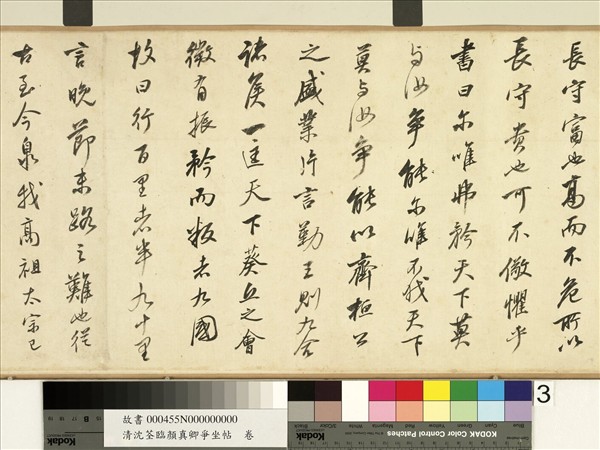 長守富也高而不危所以
長守貴也可不儆懼乎
書曰尔唯弗矜天下莫
与汝爭能尔唯不伐天下
莫与汝爭能以齊桓公
之盛業片言勤王則九合
諸侯一匡天下葵丘之會
微有振矜而叛者九國
故曰行百里者半九十里
言晚節末路之難也從
古至今泉我高祖太宗已
3
故書 000455N000000000
清沈荃臨顏真卿爭坐帖 卷
Kodak
KODAK Color Control Patches
Kodak